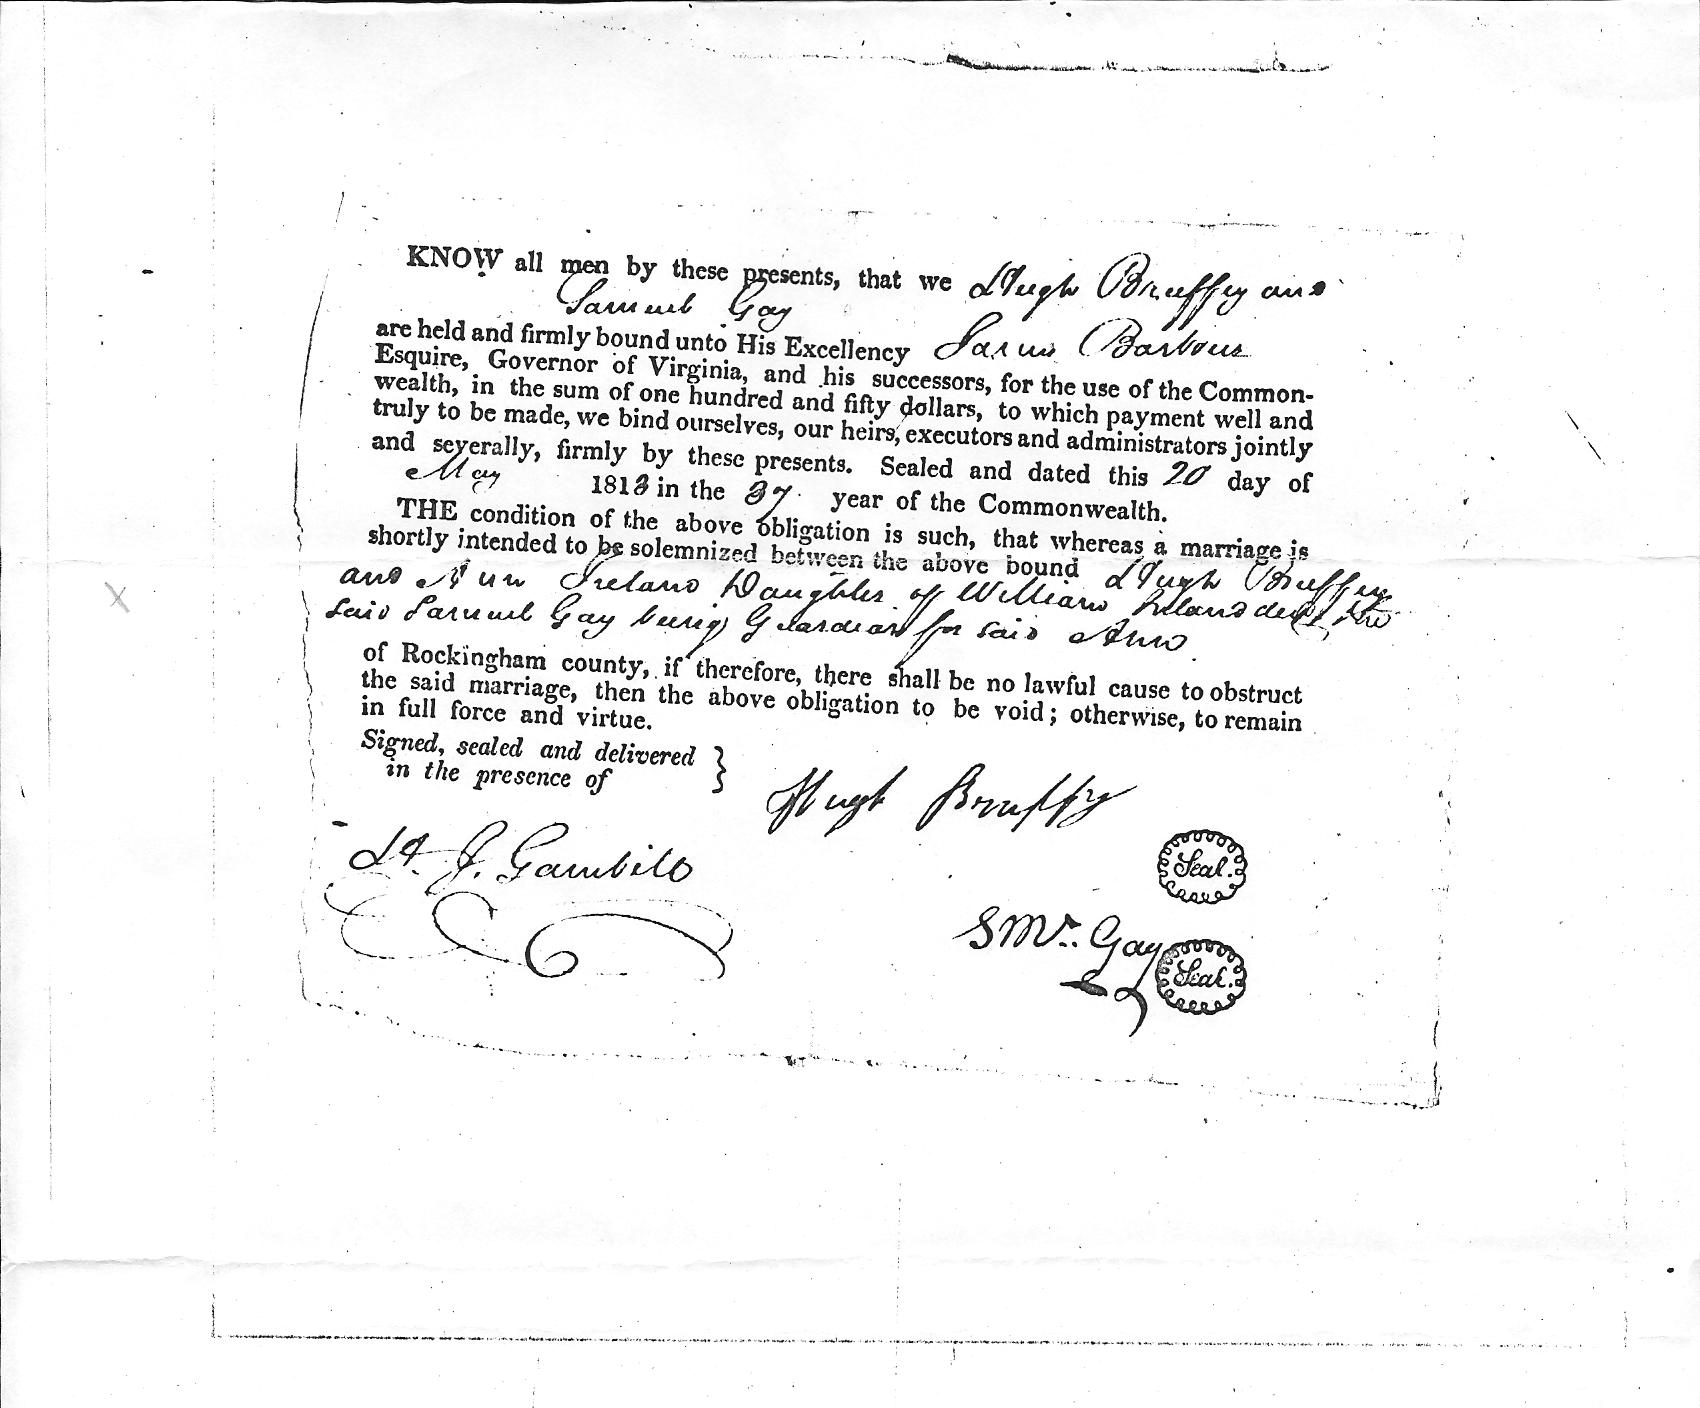 KNOW all men by these presents, that we Hugh Bruffey and
Samuel Gay
are held and firmly bound unto His Excellency James Barbour
Esquire, Governor of Virginia, and his successors, for the use of the Common-
wealth, in the sum of one hundred and fifty dollars, to which payment well and
truly to be made, we bind ourselves, our heirs, executors and administrators jointly
and severally, firmly by these presents. Sealed and dated this 20 day of
May 1813 in the 37 year of the Commonwealth.
THE condition of the above obligation is such, that whereas a marriage is
shortly intended to be solemnized between the above bound Hugh Bruffey
and Ann Ireland Daughter of William Ireland decd the
said Samuel Gay being Guardian for said Ann
of Rockingham county, if therefore, there shall be no lawful cause to obstruct
the said marriage, then the above obligation to be void; otherwise, to remain
in full force and virtue.
Signed, sealed and delivered }
in the presence of
Hugh Bruffy
H. J. Gambill
Seal.
Gay
Seal.